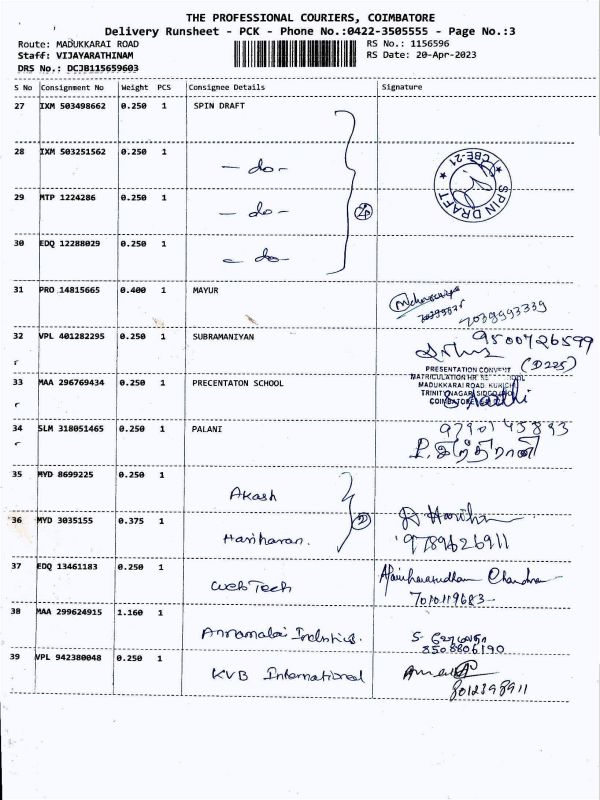 THE PROFESSIONAL COURIERS, COIMBATORE
Delivery Runsheet - PCK - Phone No.:0422-3505555 - Page No.:3
Route: MADUKKARAI ROAD
RS No.: 1156596
Staff: VIJAYARATHINAM
RS Date: 20-Apr-2023
DRS No.: DCJB115659603
S No Consignment No Weight PCS Consignee Details Signature
27 IXM 503498662 0.250 1 SPIN DRAFT
28 IXM 503251562 0.250 1 - do -
29 MTP 1224286 0.250 1 - do -
SPIN DRAFT CBE-21
30 EDQ 12288029 0.250 1 - do -
31 PRO 14815665 0.400 1 MAYUR
7038993339
32 VPL 401282295 0.250 1 SUBRAMANIYAN 9500726599
(D225)
33 MAA 296769434 0.250 1 PRECENTATON SCHOOL
PRESENTATION CONVENT
MATRICULATION HR
MADUKKARAI ROAD KURICHI
TRINITY NAGAR SIDCO
34 SLM 318051465 0.250 1 PALANI 9790145893
P. இந்திராணி
35 MYD 8699225 0.250 1 Akash
36 MYD 3035155 0.375 1 Hariharan.
9789626911
37 EDQ 13461183 0.250 1 Web Tech
7010119683
38 MAA 299624915 1.160 1 Annamalai Industies.
8508806190
39 VPL 942380048 0.250 1 KVB International
8012398911